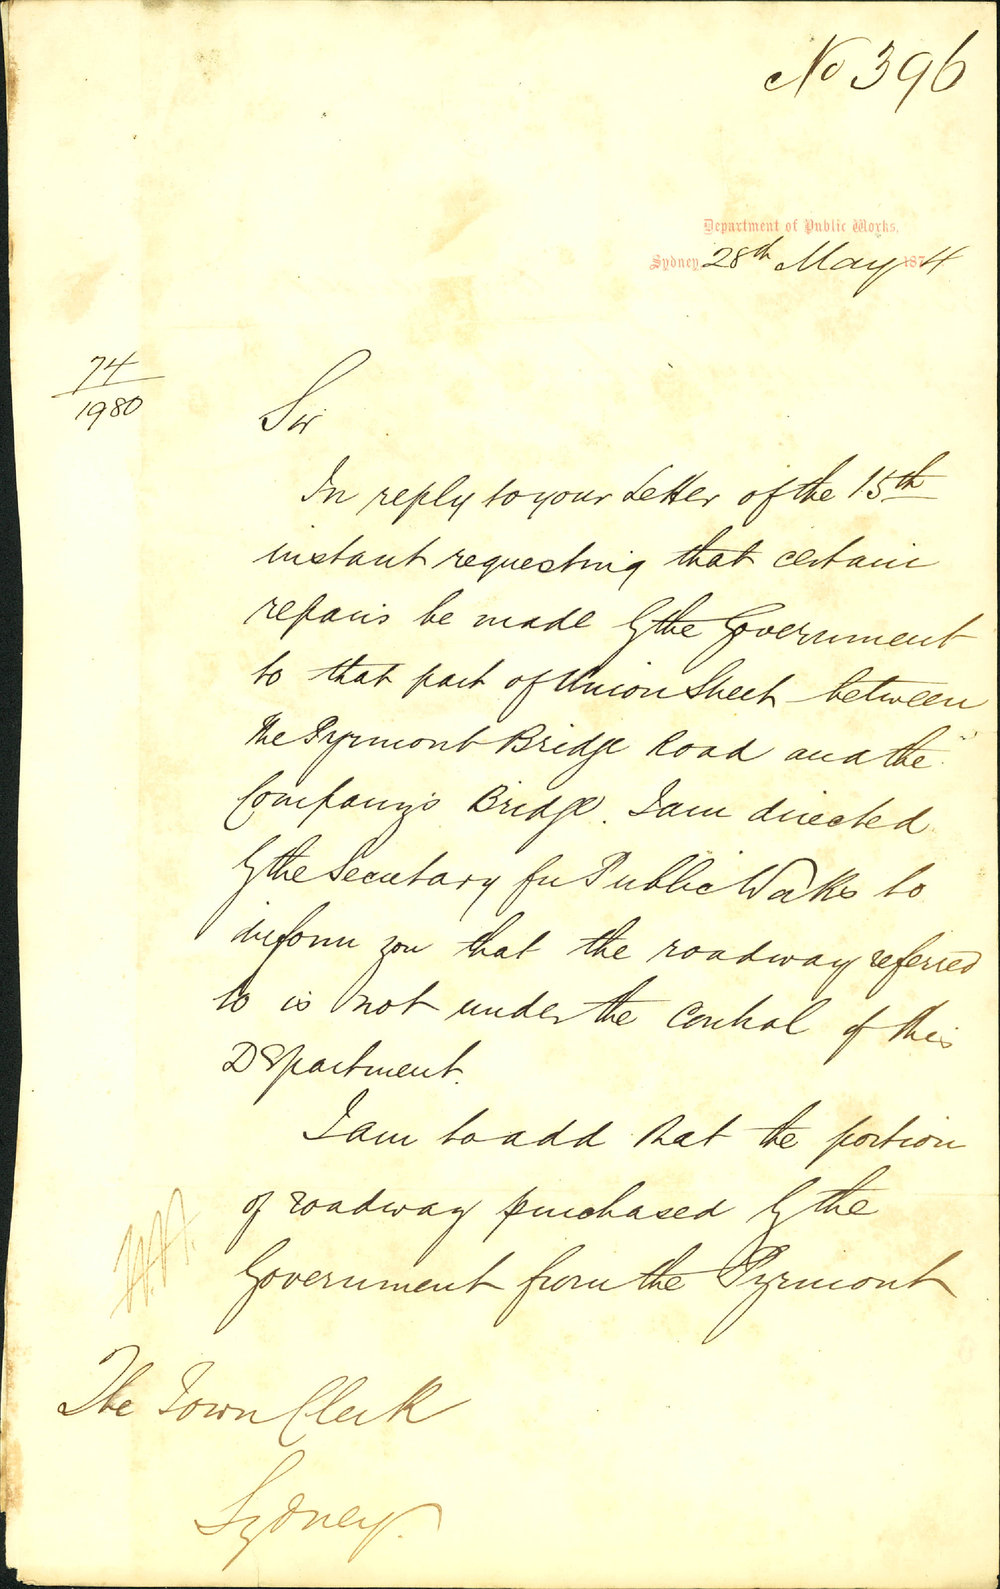 No 396
Department of Public Works,
Sydney 28th May 1874
74
1980
Sir
In reply to your Letter of the 15th
instant requesting that certain
repairs be made by the Government
to that part of Union Street between
the Pyrmont Bridge Road and the
Company's Bridge. I am directed
by the Secretary for Public Works to
inform you that the roadway referred
to is not under the control of this
Department.
I am to add that the portion
of roadway purchased by the
Government from the Pyrmont
The Town Clerk
Sydney.